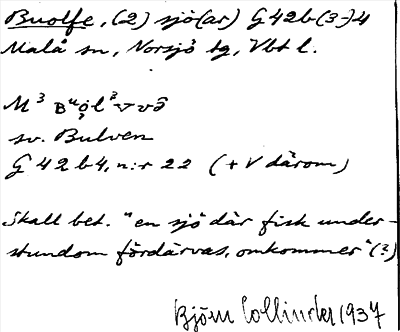 Buolfe, (2) sjö(ar) G42b(3-)4
Malå sn, Norsjö tg, Vbt l.
M³
sv. Bulven
G 42 b4, n:r 22 (+ V därom)
Skall bet. "en sjö där fisk under-
stundom fördärvas, omkommer" (?)
Björn Collinder 1937